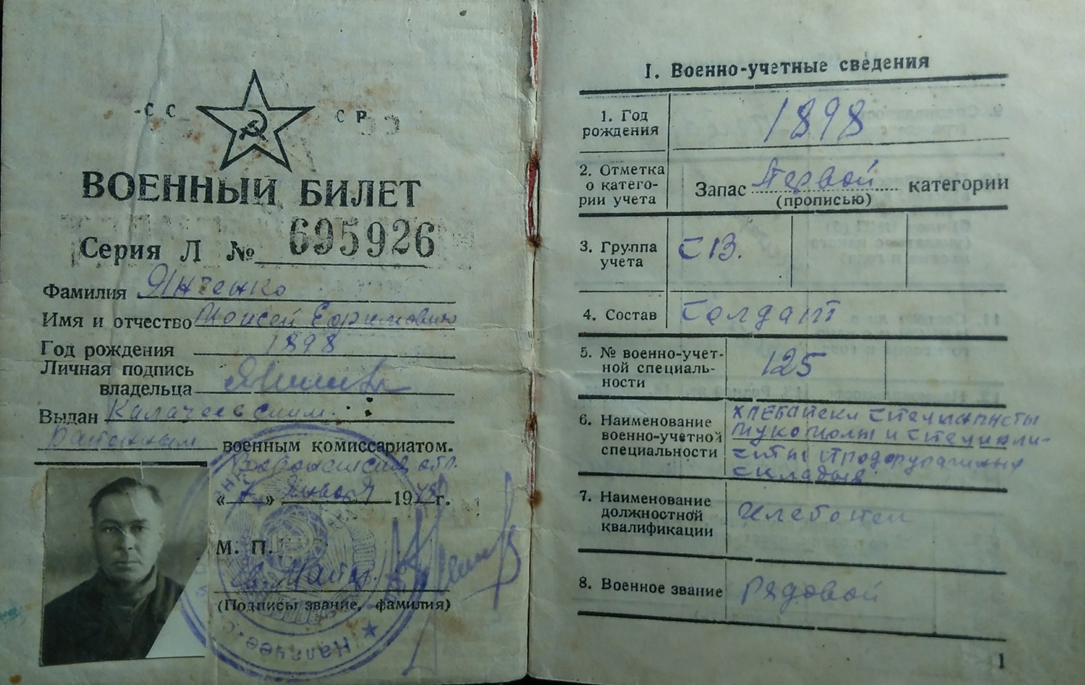 СССР
ВОЕННЫЙ БИЛЕТ
Серия Л № 695926
Фамилия
Имя и отчество Моисей
Год рождения 1898
Личная подпись
владельца
Выдан Калачеевским
Районным военным комиссариатом.
М. П.
(Подписы звание, фамилия)
I. Военно-учетные сведения
1. Год
рождения
1898
2. Отметка
о катего-
рии учета
Запас Первой категории
(прописью)
3. Группа
учета
СВ.
4. Состав
Солдат
5. № военно-учет-
ной специаль-
ности
125
6. Наименование
военно-учетной
специальности
Хлебопеки специалисты
мукомолы и специали-
сты продфуражных
складов
7. Наименование
должностной
квалификации
Хлебопек
8. Военное звание
Рядовой
1